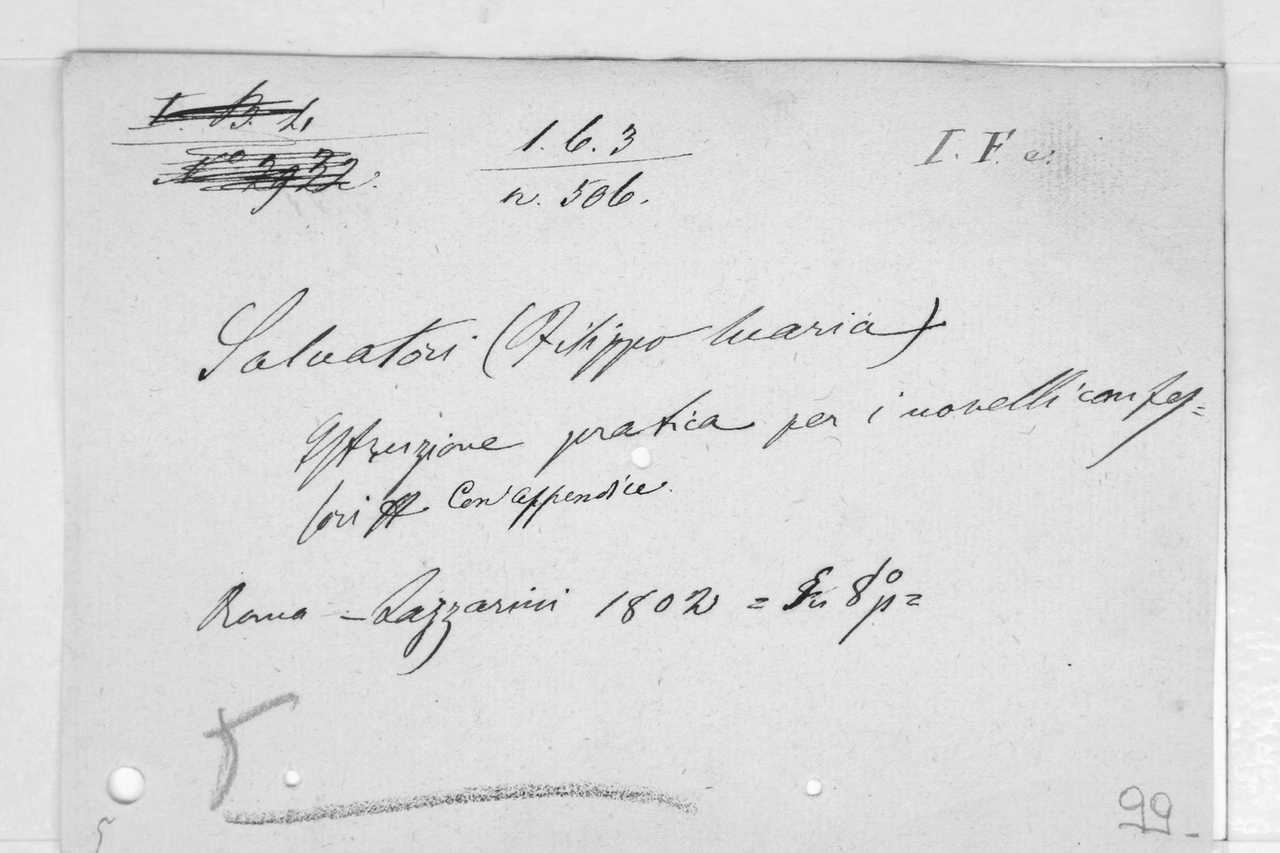 I. B. 2,
Nº 2932.
1. 6. 3
n. 506.
I. F. a.
Salvatori (Filippo Maria)
Istruzione pratica per i novelli confes=
sori Con appendice.
Roma - Lazzarini 1802 = In 8º p=
99-